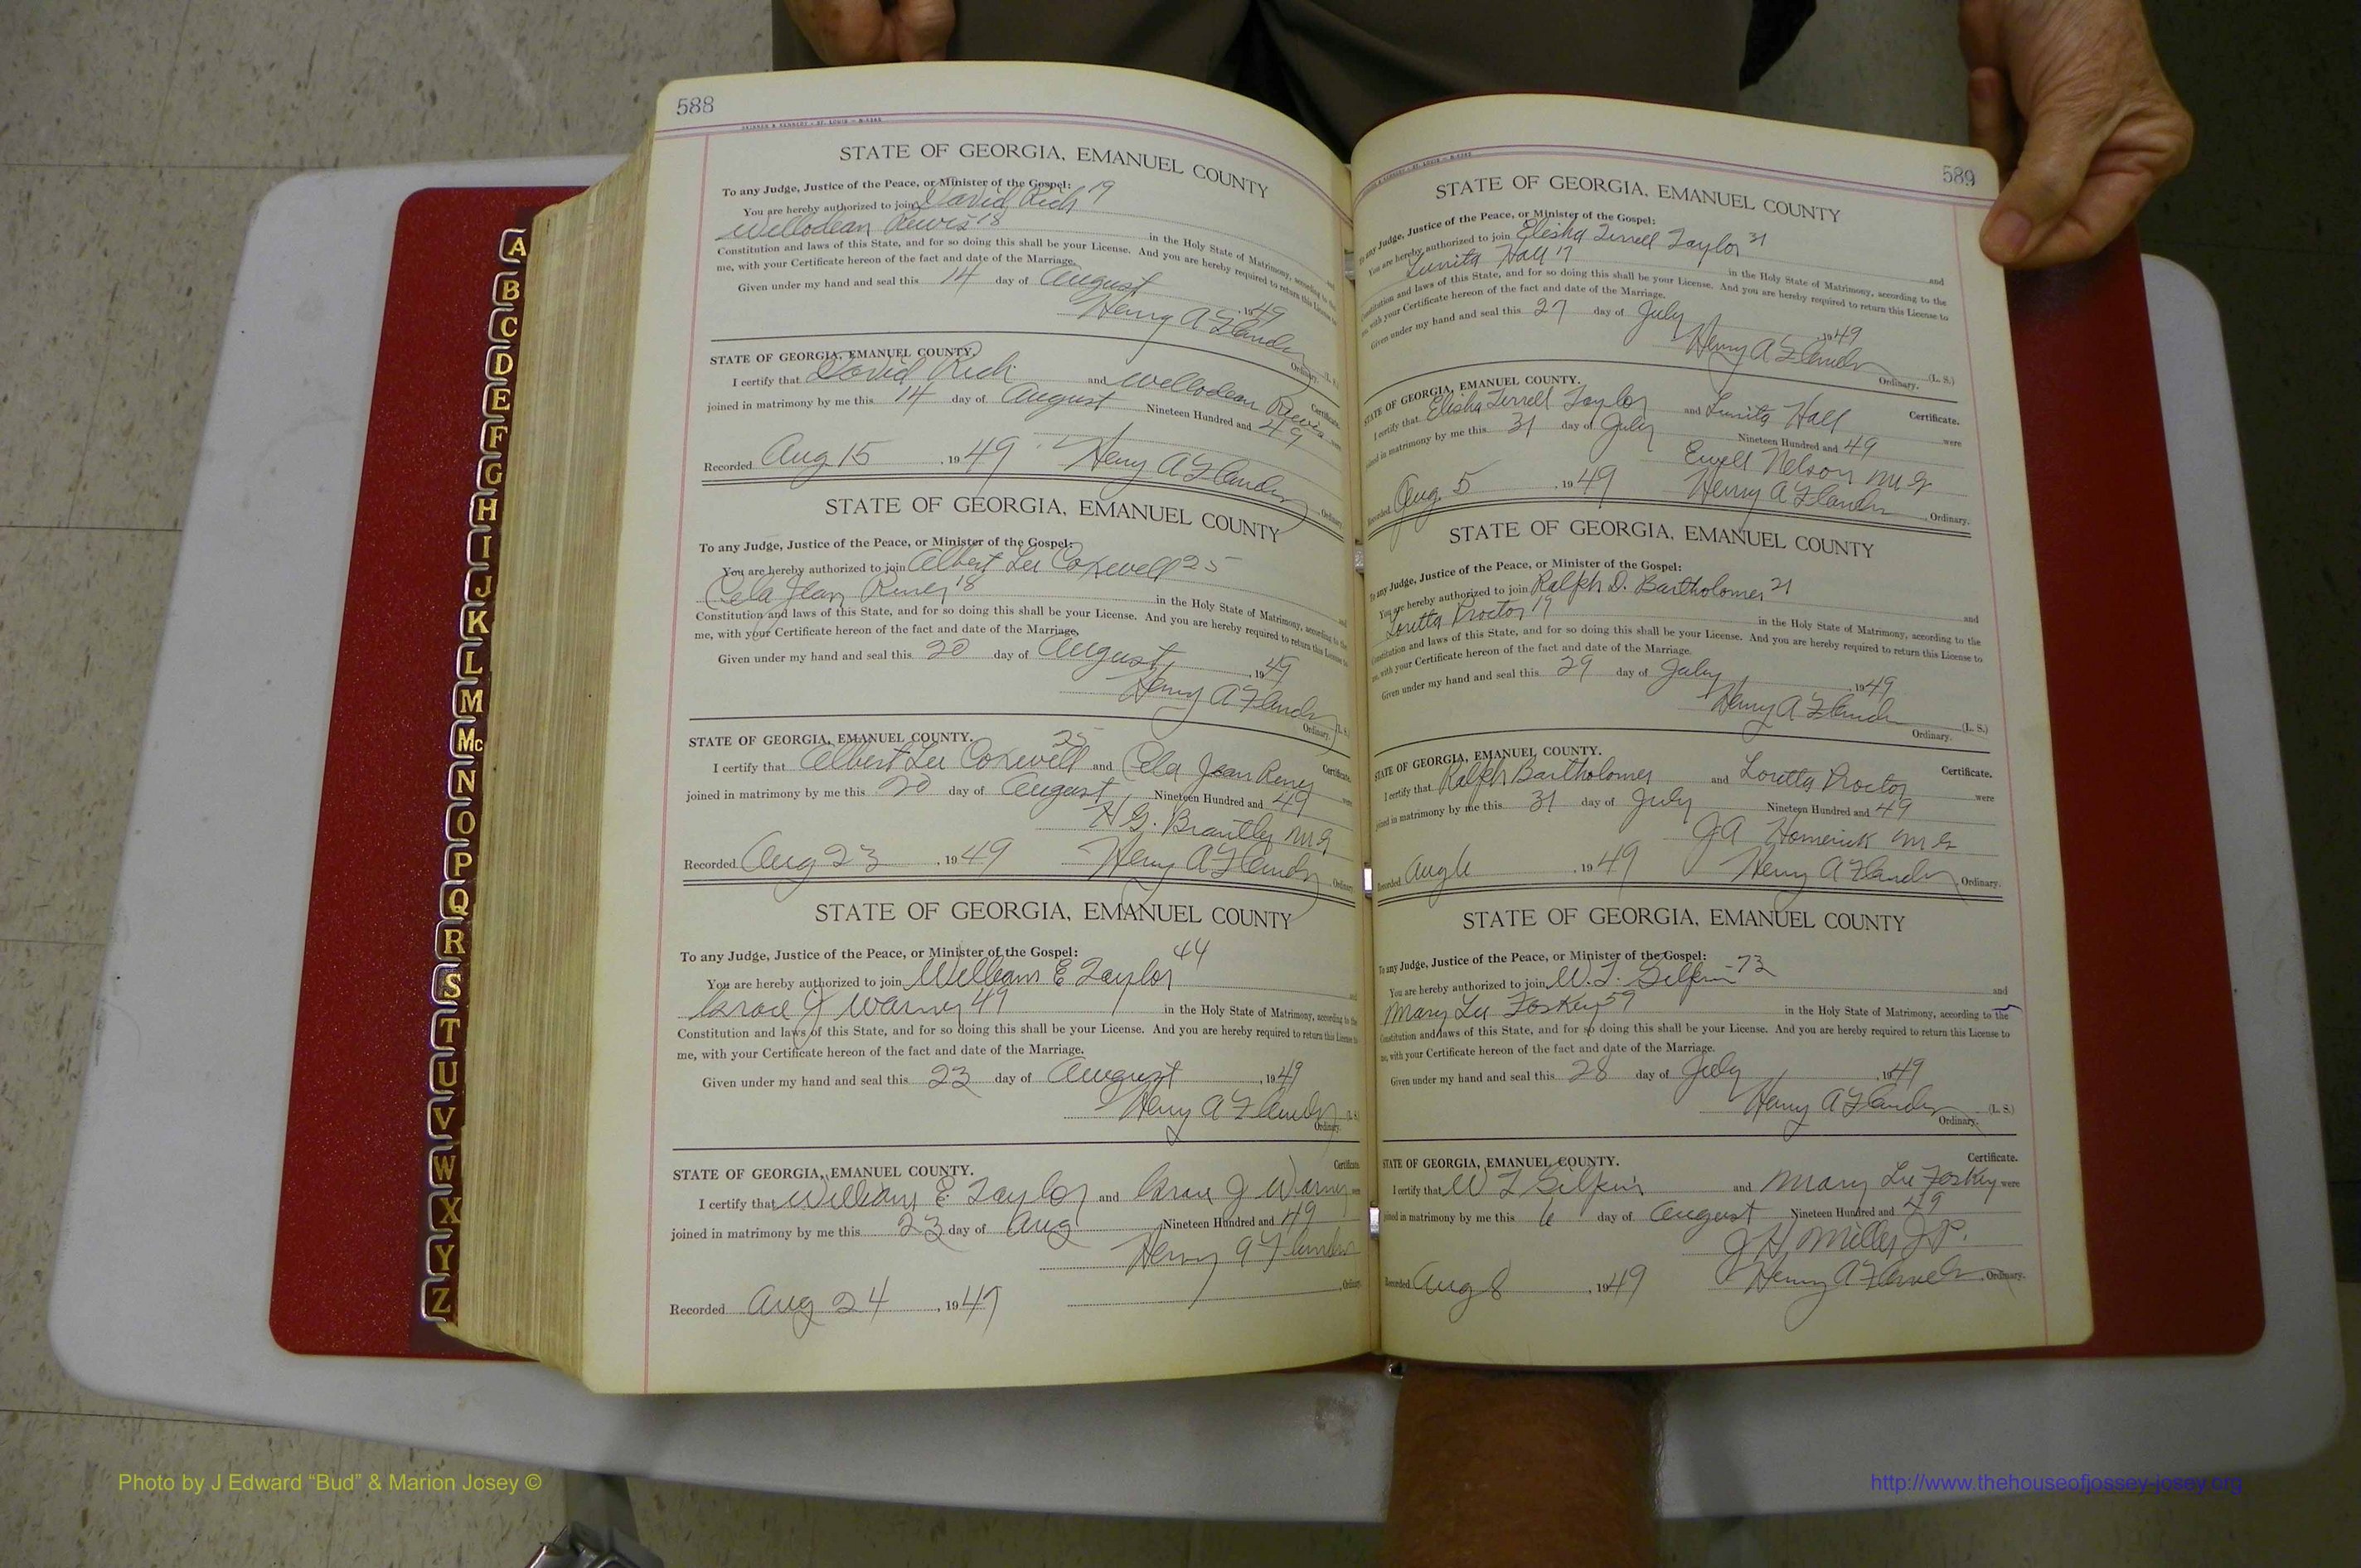 588
SKINNER & KENNEDY - ST. LOUIS
STATE OF GEORGIA, EMANUEL COUNTY
To any Judge, Justice of the Peace, or Minister of the Gospel:
You are hereby authorized to join David Rich 19
Willodean 18 in the Holy State of Matrimony, according to the
Constitution and laws of this State, and for so doing this shall be your License. And you are hereby required to return this License to
me, with your Certificate hereon of the fact and date of the Marriage.
Given under my hand and seal this 14 day of August, 1949
Henry A Flanders (L. S.)
Ordinary.
STATE OF GEORGIA, EMANUEL COUNTY. Certificate.
I certify that David Rich and Willodean were
joined in matrimony by me this 14 day of August Nineteen Hundred and 49
Recorded Aug 15, 1949 Henry A Flanders, Ordinary.
STATE OF GEORGIA, EMANUEL COUNTY
To any Judge, Justice of the Peace, or Minister of the Gospel:
You are hereby authorized to join Albert Lee Coxwell 25 and
Jean 18 in the Holy State of Matrimony, according to the
Constitution and laws of this State, and for so doing this shall be your License. And you are hereby required to return this License to
me, with your Certificate hereon of the fact and date of the Marriage.
Given under my hand and seal this 20 day of August, 1949
Henry A Flanders (L. S.)
Ordinary.
STATE OF GEORGIA, EMANUEL COUNTY. 25 Certificate.
I certify that Albert Lee Coxwell and Jean were
joined in matrimony by me this 20 day of August Nineteen Hundred and 49
H G. Brantley M G
Recorded Aug 23, 1949 Henry A Flanders, Ordinary.
STATE OF GEORGIA, EMANUEL COUNTY
To any Judge, Justice of the Peace, or Minister of the Gospel: 44
You are hereby authorized to join William E Taylor and
Grace J Warner 49 in the Holy State of Matrimony, according to the
Constitution and laws of this State, and for so doing this shall be your License. And you are hereby required to return this License to
me, with your Certificate hereon of the fact and date of the Marriage.
Given under my hand and seal this 23 day of August, 1949
Henry A Flanders (L. S.)
Ordinary.
STATE OF GEORGIA, EMANUEL COUNTY. Certificate.
I certify that William E. Taylor and Grace J Warner were
joined in matrimony by me this 23 day of Aug Nineteen Hundred and 49
Henry A Flanders
Recorded Aug 24, 1949 Ordinary.
589
STATE OF GEORGIA, EMANUEL COUNTY
To any Judge, Justice of the Peace, or Minister of the Gospel:
You are hereby authorized to join Elisha Terrell Taylor 31 and
Hall 17 in the Holy State of Matrimony, according to the
Constitution and laws of this State, and for so doing this shall be your License. And you are hereby required to return this License to
me, with your Certificate hereon of the fact and date of the Marriage.
Given under my hand and seal this 27 day of July, 1949
Henry A Flanders (L. S.)
Ordinary.
STATE OF GEORGIA, EMANUEL COUNTY. Certificate.
I certify that Elisha Terrell Taylor and Hall were
joined in matrimony by me this 31 day of July Nineteen Hundred and 49
Ewell Nelson M G
Recorded Aug. 5, 1949 Henry A Flanders, Ordinary.
STATE OF GEORGIA, EMANUEL COUNTY
To any Judge, Justice of the Peace, or Minister of the Gospel:
You are hereby authorized to join Ralph D. Bartholomer 21 and
Loretta Proctor 19 in the Holy State of Matrimony, according to the
Constitution and laws of this State, and for so doing this shall be your License. And you are hereby required to return this License to
me, with your Certificate hereon of the fact and date of the Marriage.
Given under my hand and seal this 29 day of July, 1949
Henry A Flanders (L. S.)
Ordinary.
STATE OF GEORGIA, EMANUEL COUNTY. Certificate.
I certify that Ralph Bartholomer and Loretta Proctor were
joined in matrimony by me this 31 day of July Nineteen Hundred and 49
J A M G
Recorded Aug 6, 1949 Henry A Flanders, Ordinary.
STATE OF GEORGIA, EMANUEL COUNTY
To any Judge, Justice of the Peace, or Minister of the Gospel:
You are hereby authorized to join 73 and
Mary Lee Foskey 59 in the Holy State of Matrimony, according to the
Constitution and laws of this State, and for so doing this shall be your License. And you are hereby required to return this License to
me, with your Certificate hereon of the fact and date of the Marriage.
Given under my hand and seal this 28 day of July, 1949
Henry A Flanders (L. S.)
Ordinary.
STATE OF GEORGIA, EMANUEL COUNTY. Certificate.
I certify that and Mary Lee Foskey were
joined in matrimony by me this 6 day of August Nineteen Hundred and 49
J H, Miller J. P.
Recorded Aug 8, 1949 Henry A Flanders, Ordinary.
A
B
C
D
E
F
G
H
I
J
K
L
M
Mc
N
O
P
Q
R
S
T
U
V
W
X
Y
Z
Photo by J Edward “Bud” & Marion Josey ©
http://www.thehouseofjossey-josey.org